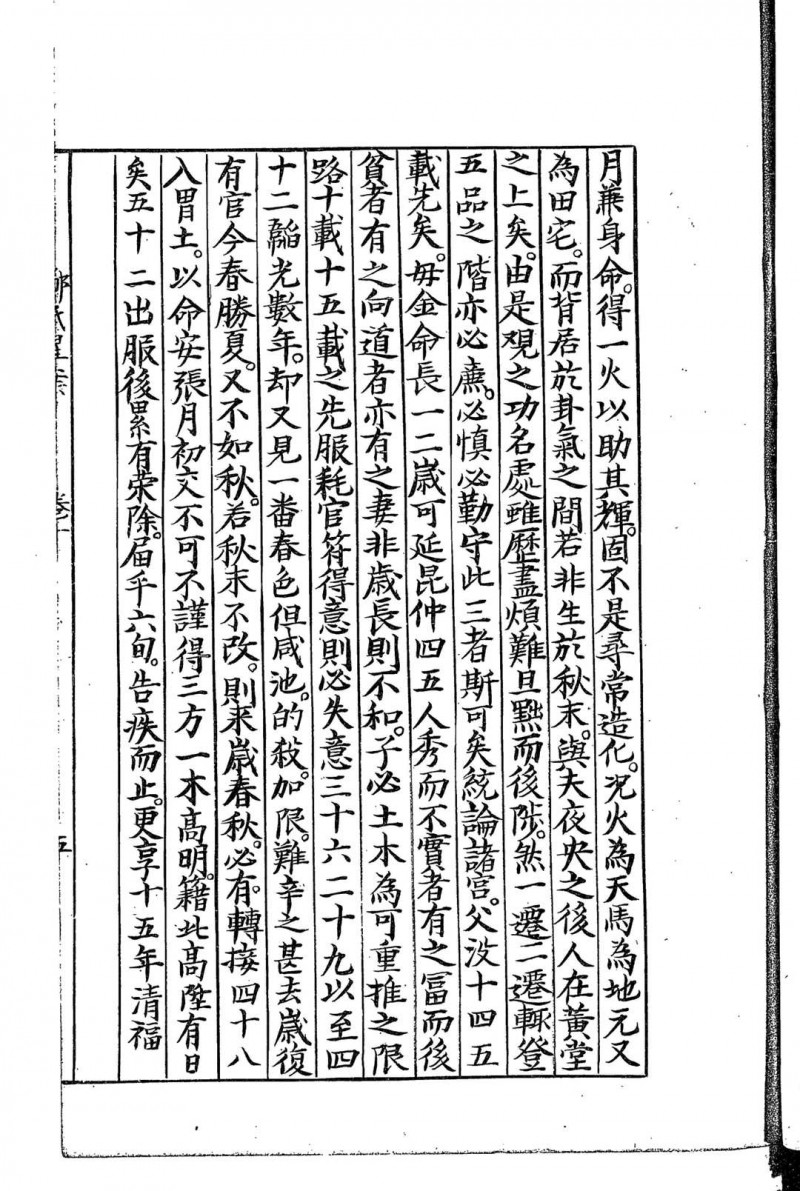 月兼身命。得一火以助其輝。固不是尋常造化。況火為天馬為地元又
為田宅。而背居於卦氣之間若非生於秋末。與夫夜央之後人在黃堂
之上矣。由是观之功名處雖歷盡煩難且黜而後陟。然一遷二遷輒登
五品之階亦必廉。必慎必勤守此三者斯可矣統論諸宮。父没十四五
載先矣。毋金命長一二歲可延昆仲四五人秀而不實者有之冨而後
貧者有之向道者亦有之妻非歲長則不和。子必土木為可重推之限
路十載十五載之先服耗官符得意則必失意三十六二十九以至四
十二韜光數年。却又見一番春色但咸池。的殺加限。難辛之甚去歲復
有官今春勝夏。又不如秋。若秋末不改。則来歲春秋。必有。轉接四十八
入胃土。以命安張月初交不可不謹得三方一木高明。籍此高陞有日
矣五十二出服後累有荣除。届乎六旬。告疾而止。更享十五年清福
鄭氏星案
卷一
五